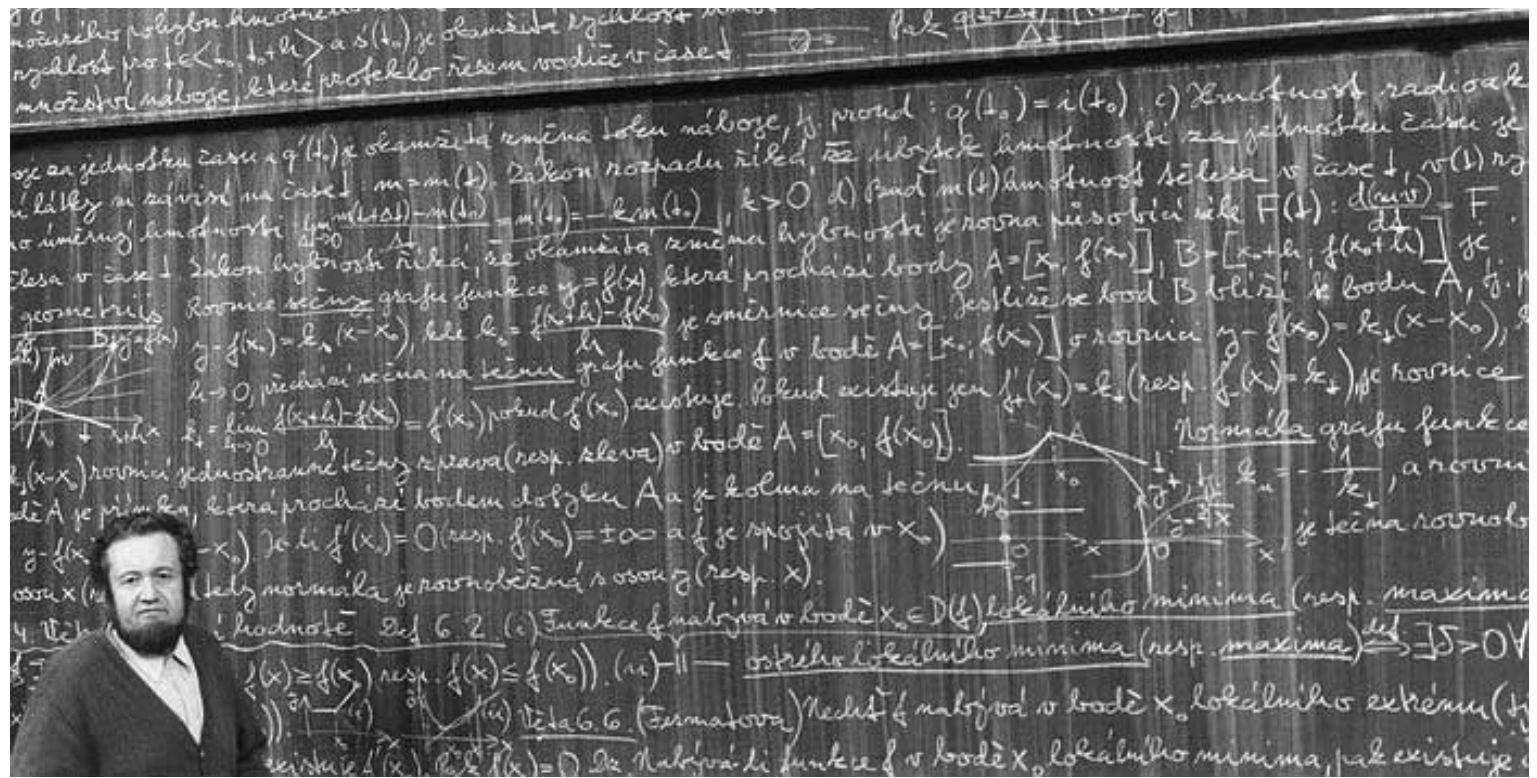 nočarého pohybu hmotného
rychlost pro t∈<t₀, t₀+h> a s(t₀) je okamžitá rychlost
množství náboje, které proteklo řezem vodiče v čase t . Pak q(t+Δt) Δt je
za jednotku času a q'(t₀) je okamžitá změna toku náboje, tj. proud : q'(t₀) = i(t₀). c) Hmotnost radioak
látky m závisí na čase t : m = m(t). Zákon rozpadu říká, že úbytek hmotnosti za jednotku času je
úměrný hmotnosti : lim Δt→0 m(t+Δt)-m(t₀) / Δt = m'(t₀) = -km(t₀), k>0. d) Buď m(t) hmotnost tělesa v čase t, v(t) ry
tělesa v čase t. Zákon hybnosti říká, že okamžitá změna hybnosti je rovna působící síle F(t) : d(mv)/dt = F
geometrii Rovnice sečny grafu funkce y=f(x), která prochází body A=[x₀, f(x₀)], B=[x₀+h, f(x₀+h)] je
B y=f(x) y-f(x₀)=kₛ(x-x₀), kde kₛ = f(x₀+h)-f(x₀) / h je směrnice sečny. Jestliže se bod B blíží k bodu A, tj. p
h→0, přechází sečna na tečnu grafu funkce f v bodě A=[x₀, f(x₀)] o rovnici y-f(x₀)=kₜ(x-x₀),
kₜ = lim h→0 f(x₀+h)-f(x₀) / h = f'(x₀) pokud f'(x₀) existuje. Pokud existuje jen f'₊(x₀)=kₜ (resp. f'₋(x₀)=kₜ), je rovnice
kₜ(x-x₀) rovnicí jednostranné tečny zprava (resp. zleva) v bodě A=[x₀, f(x₀)]. Normála grafu funkce
A je přímka, která prochází bodem dotyku A a je kolmá na tečnu, kₙ = - 1/kₜ, a rovni
y-f(x -x₀). Je-li f'(x₀)=0 (resp. f'(x₀)=±∞ a f je spojitá v x₀) je tečna rovnob
osou x ( tedy normála je rovnoběžná s osou y (resp. x).
4. Vět hodnotě Def 6.2. (i) Funkce f nabývá v bodě x₀∈D(f) lokálního minima (resp. maxima
f(x)≥f(x₀) resp. f(x)≤f(x₀)). (ii) -||- ostrého lokálního minima (resp. maxima) def ⟺ ∃δ>0∀
(i) (ii) Věta 6.6. (Fermatova) Nechť f nabývá v bodě x₀ lokálního extrému (tj
existuje f'(x₀). Pak f'(x₀)=0 Dz. Nabývá-li funkce f v bodě x₀ lokálního minima, pak existuje